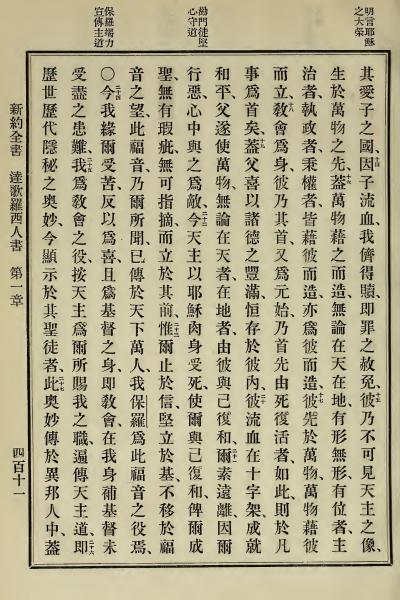 明言耶穌
之大榮
勸門徒堅
心守道
保羅竭力
宣傳主道
其愛子之國、十四因子流血、我儕得贖、即罪之赦免、十五彼乃不可見天主之像、
生於萬物之先、十六蓋萬物藉之而造、無論在天在地、有形無形、有位者、主
治者、執政者、秉權者、皆藉彼而造、亦爲彼而造、十七彼先於萬物、萬物藉彼
而立、十八敎會爲身、彼乃其首、又爲元始、乃首先由死復活者、如此、則於凡
事爲首矣、十九蓋父喜以諸德之豐滿、恒存於彼內、二十彼流血在十字架、成就
和平、父遂使萬物、無論在天者、在地者、由彼與己復和、二十一爾素遠離、因爾
行惡、心中與之爲敵、今二十二天主以耶穌肉身受死、使爾與己復和、俾爾成
聖、無有瑕疵、無可指摘、而立於其前、二十三惟爾止於信、堅立於基、不移於福
音之望、此福音乃爾所聞、已傳於天下萬人、我保羅爲此福音之役焉、
○二十四今我緣爾受苦、反以爲喜、且爲基督之身、即敎會、在我身補基督未
受盡之患難、二十五我爲敎會之役、按天主爲爾所賜我之職、遍傳天主道、二十六即
歷世歷代隱秘之奧妙、今顯示於其聖徒者、二十七此奧妙傳於異邦人中、蓋
新約全書 達歌羅西人書 第一章 四百十一